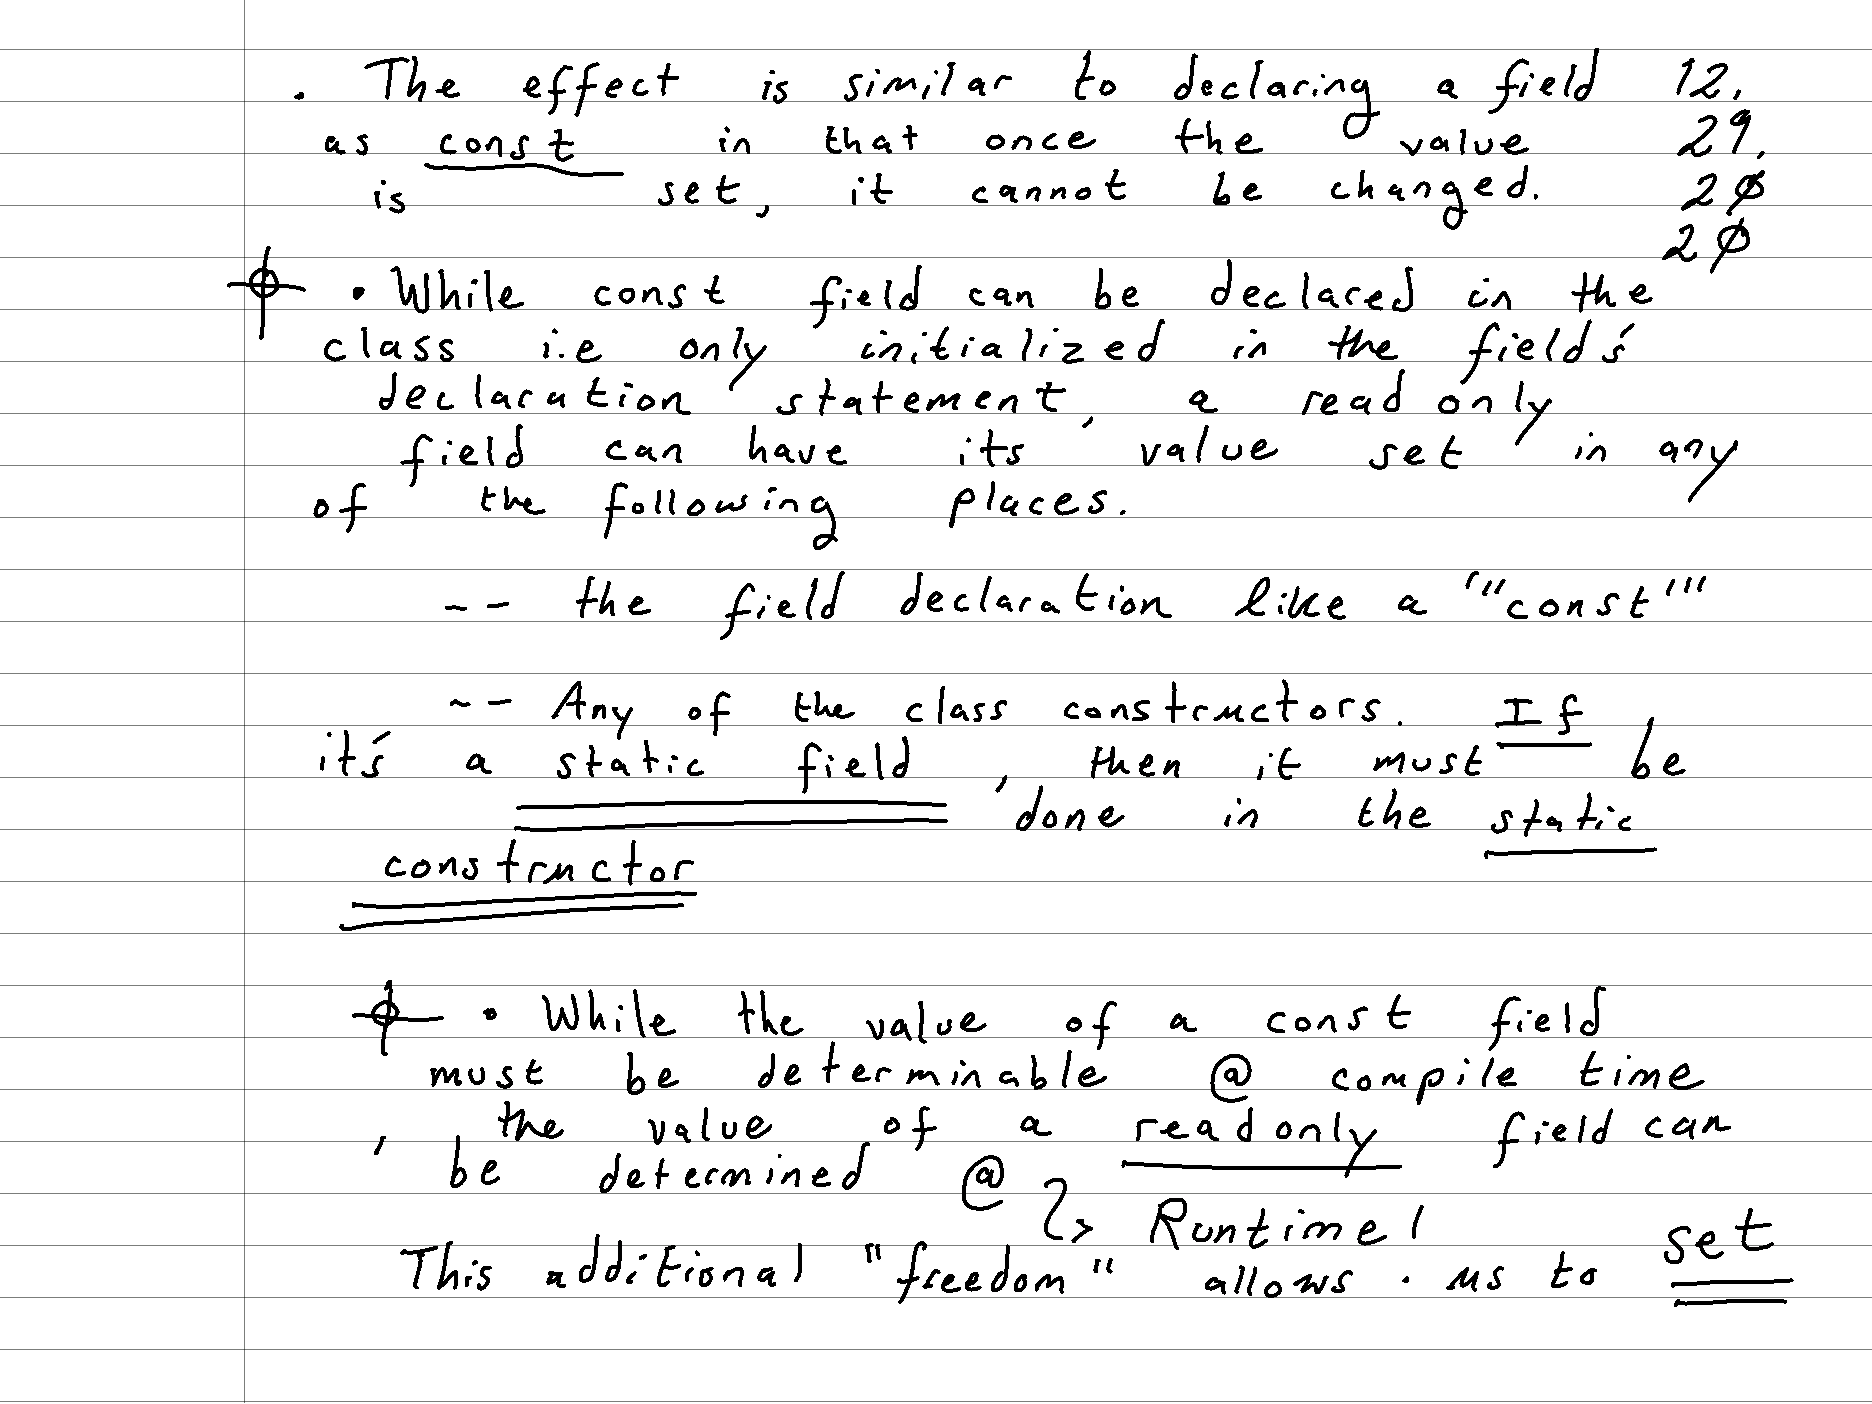 . The effect is similar to declaring a field 12.
as const in that once the value 29.
is set, it cannot be changed. 2Ø
2Ø
• While const field can be declared in the
class i.e only initialized in the field's
declaration statement, a readonly
field can have its value set in any
of the following places.
-- the field declaration like a '""const"'"
-- Any of the class constructors. If
it's a static field, then it must be
done in the static
constructor
• While the value of a const field
must be determinable @ compile time
, the value of a readonly field can
be determined @
Runtime!
This additional "freedom" allows . us to set